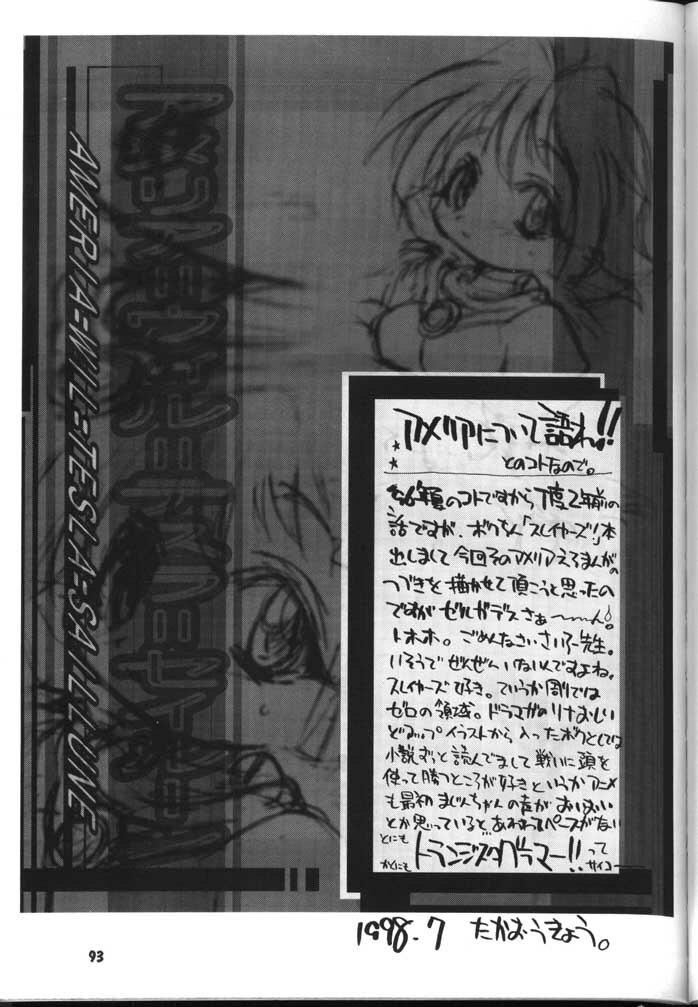 AMERIA=WIL=TESLA=SAILLUNE
アメリア＝ウィル＝テスラ＝セイルーン
アメリアについて語れ!!
とのコトなので。
'96年夏のコトですから丁度2年前の
話ですが、ボクちん「スレイヤーズ!」本
出しまして今回そのアメリアえろまんがの
つづきを描かせて頂こうと思ったの
ですがゼルガデスさぁ〜〜ん!
トホホ。ごめんなさいさいふー先生。
いそうでぜんぜんいないんですよね。
スレイヤーズ好き。ていうか周りでは
ゼロの領域。ドラマガのリナおしい
どアップイラストから入ったボクとしては
小説ずっと読んでまして戦いに頭を
使って勝つところが好きというかアニメ
も最初まじんちゃんの声が
とか思っていると、あわわもうペースがない
とにも
かくにも トランジスタグラマー!! って
サイコー
1998.7 たかおうきょう。
93